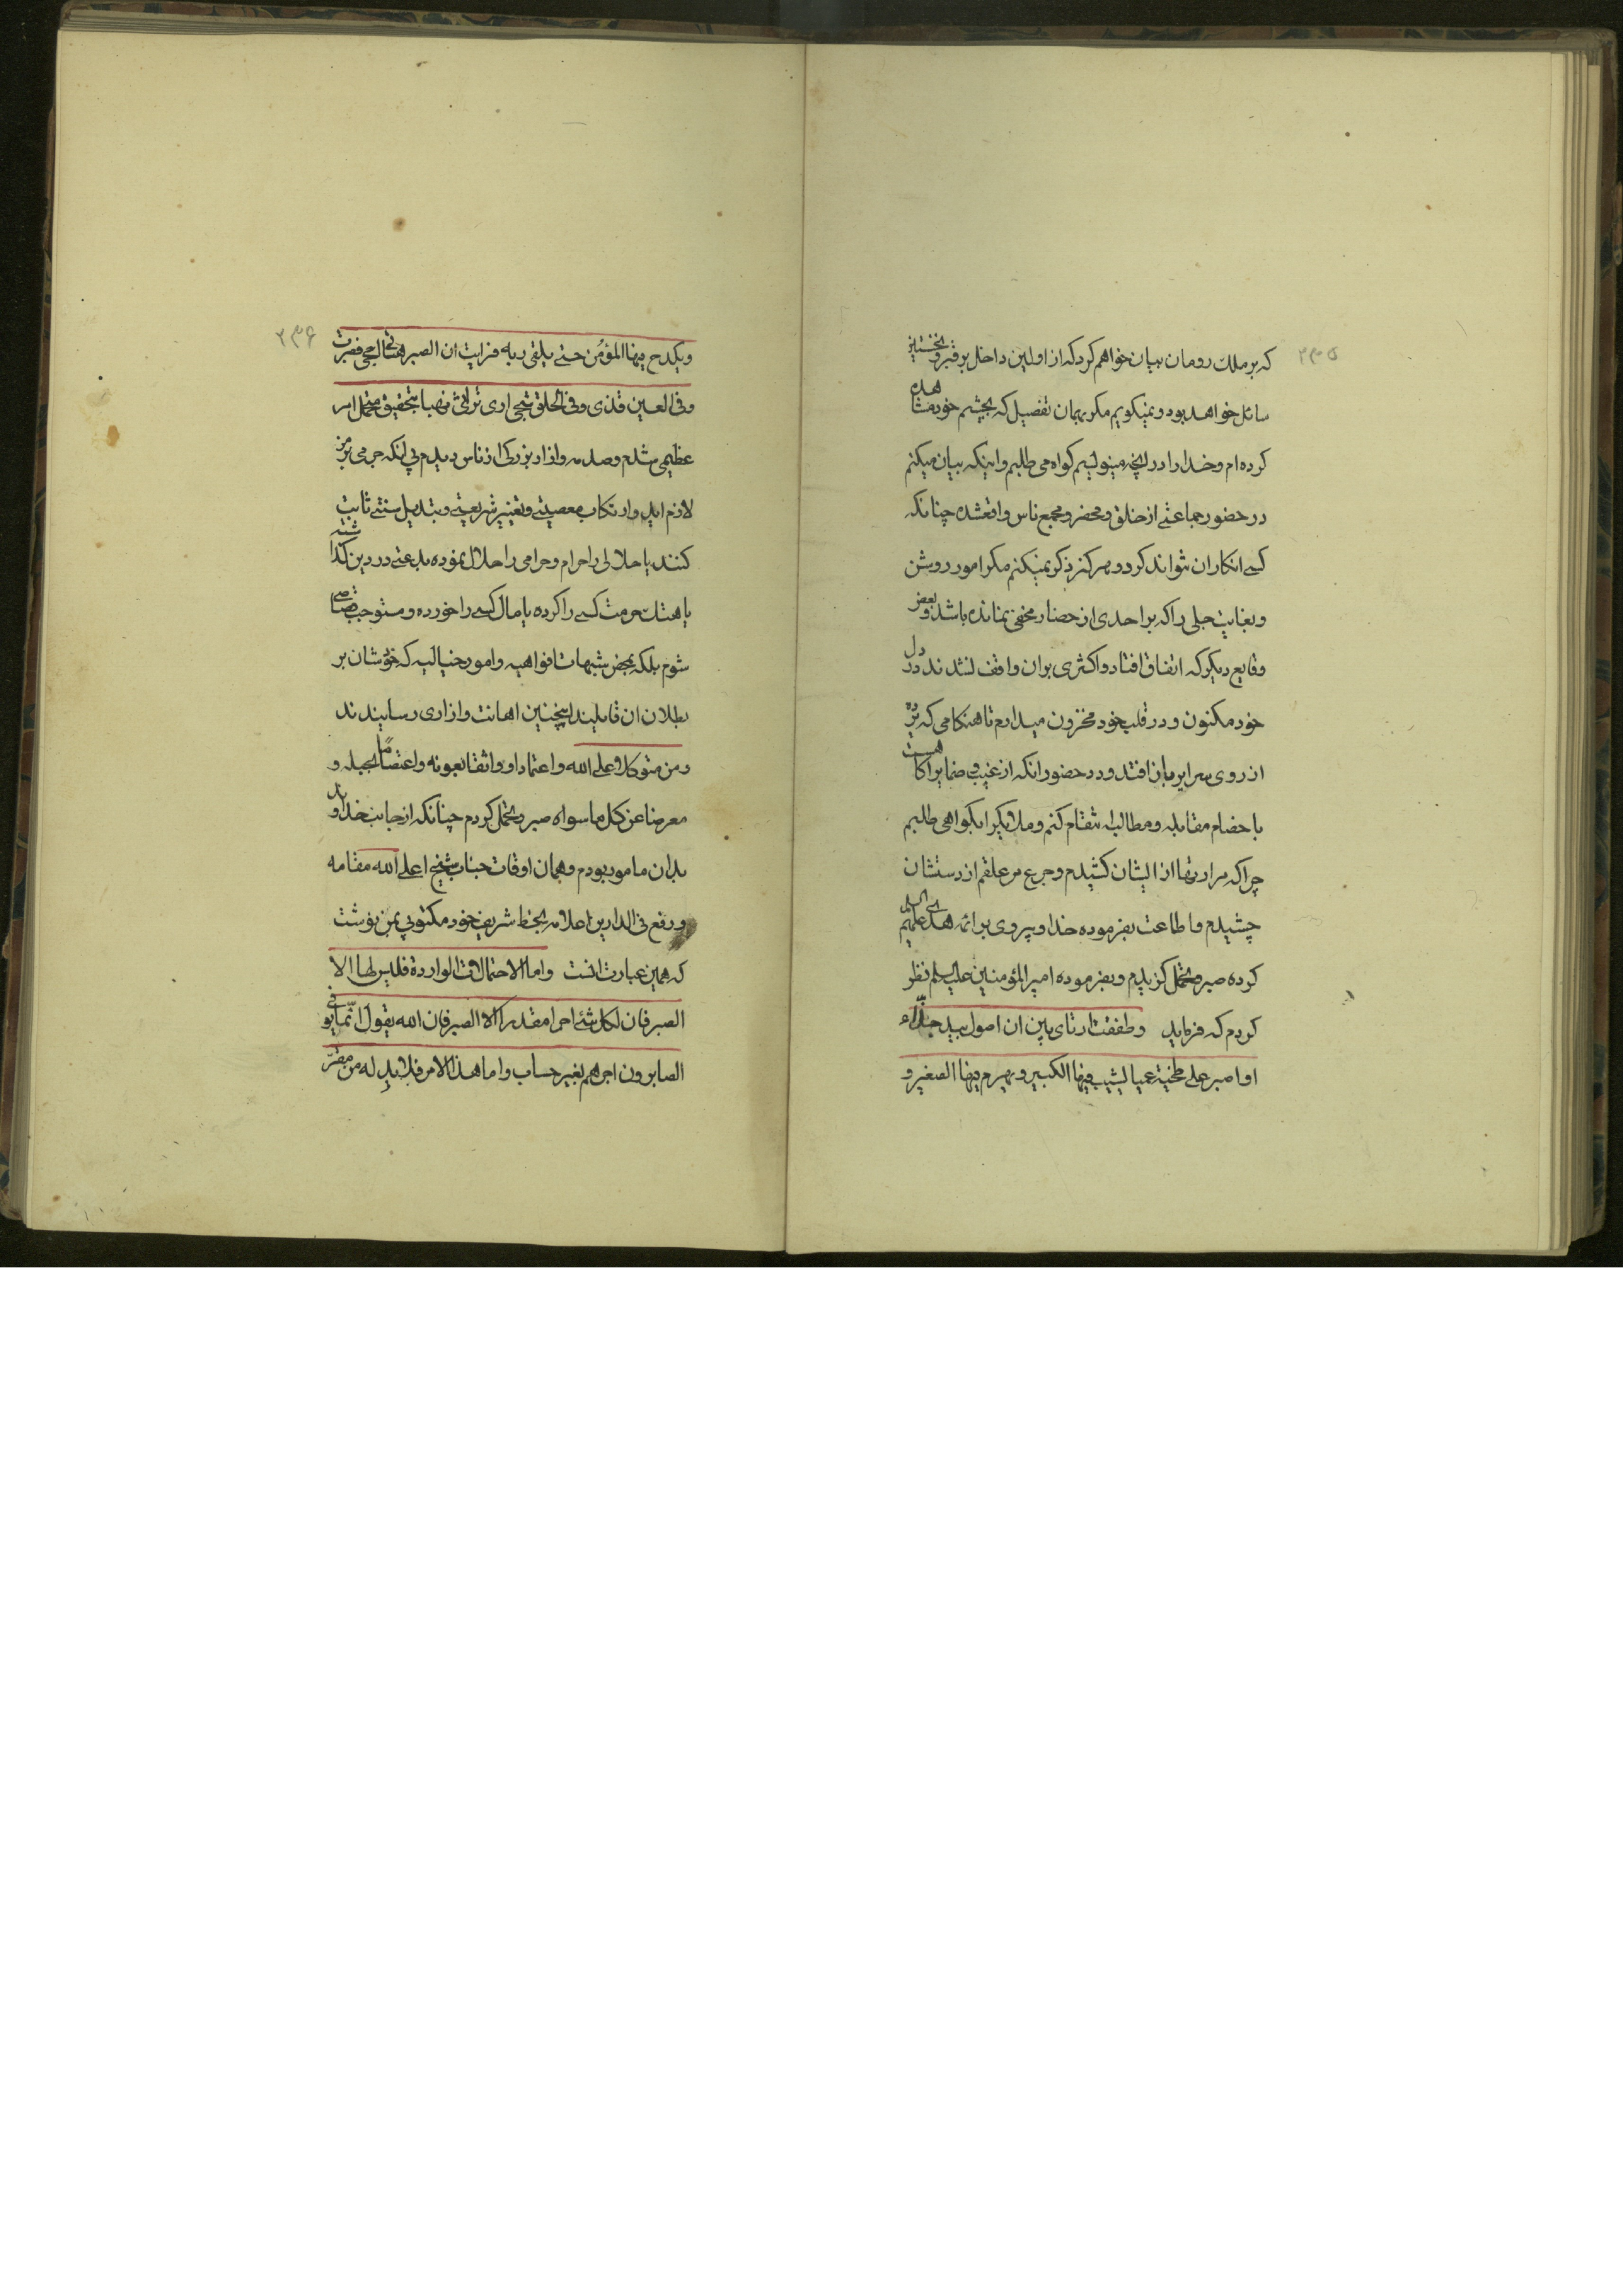 ۲۳۵
که بر ملک رومان بیان خواهم کرد که از اولین داخل بر قبر و نخستین
سائل خواهد بود و نمیگویم مگر بهمان تفصیل که بچشم خود مشاهده
کرده ام و خدا را در آنچه مینویسم کواه می طلبم و اینکه بیان میکنم
در حضور جماعتی از خلق و محضر و مجمع ناس واقعشده چنانکه
کسی انکار ان نتواند کرد و هرکز ذکر نمیکنم مگر امور روشن
و بغایت جلی را که بر احدی از حضار مخفی نمانده باشد و بعض
وقایع دیگر که اتفاق افتاد و اکثری بران واقف نشدند در دل
خود مکنون و در قلب خود مخزون میدارم تا هنکامی که پرده
از روی سرایر باز افتد و در حضور انکه از غیب و ضمایر اکاهست
با خصام مقابله و مطالبه انتقام کنم و ملائکه را بکواهی طلبم
چرا که مرارتها از ایشان کشیدم و جرع مر علقم از دستشان
چشیدم و اطاعت بفرموده خدا و پیروی بر ائمه هدی علیهم السلام
کرده صبر و تحمل کزیدم و بفرموده امیر المؤمنین علیه السلم نظر
کردم که فرماید وطفقت ارتای بین ان اصول بید جذّاء
او اصبر علی طخیة عمیا یشیب فیها الکبیر و یهرم فیها الصغیر و
۲۳۶
ویکدح فیها المؤمن حتی یلقی ربه فرایت ان الصبر علی هاتی احجی فصبرت
وفی العین قذی وفی الحلق شجی اری تراثی نهبا بتحقیق متحمل امر
عظیمی شدم و صدمه و ازار بزرکی از ناس دیدم بی انکه جرمی بر من
لازم اید و ارتکاب معصیتی و تغییر شریعتی و تبدیل سنتی ثابت
کنند یا حلالی را حرام و حرامی را حلال نموده بدعتی در دین گذاشته
یا هتک حرمت کسی را کرده یا مال کسی را خورده و مستوجب قصاصی
شوم بلکه بمحض شبهات افواهیه و امور خیالیه که خودشان بر
بطلان ان قایلیند اینچنین اهانت و ازاری رسانیدند
و من متوکلا علی الله و اعتمادا و واثقا بعونه و اعتصامًا بحبله و
معرضا عن کل ما سواه صبر و تحمل کردم چنانکه از جانب خداوند
بدان مامور بودم و همان اوقات جناب شیخ اعلی الله مقامه
و رفع فی الدارین اعلامه بخط شریف خود مکتوبی بمن نوشت
که همین عبارت انست واما الاحتمالات الواردة فلیس لها الا
الصبر فان لکل شئ اجرا مقدرا الا الصبر فان الله یقول انّما یوفی
الصابرون اجرهم بغیر حساب و اما هذا الامر فلابد له من مقرّ